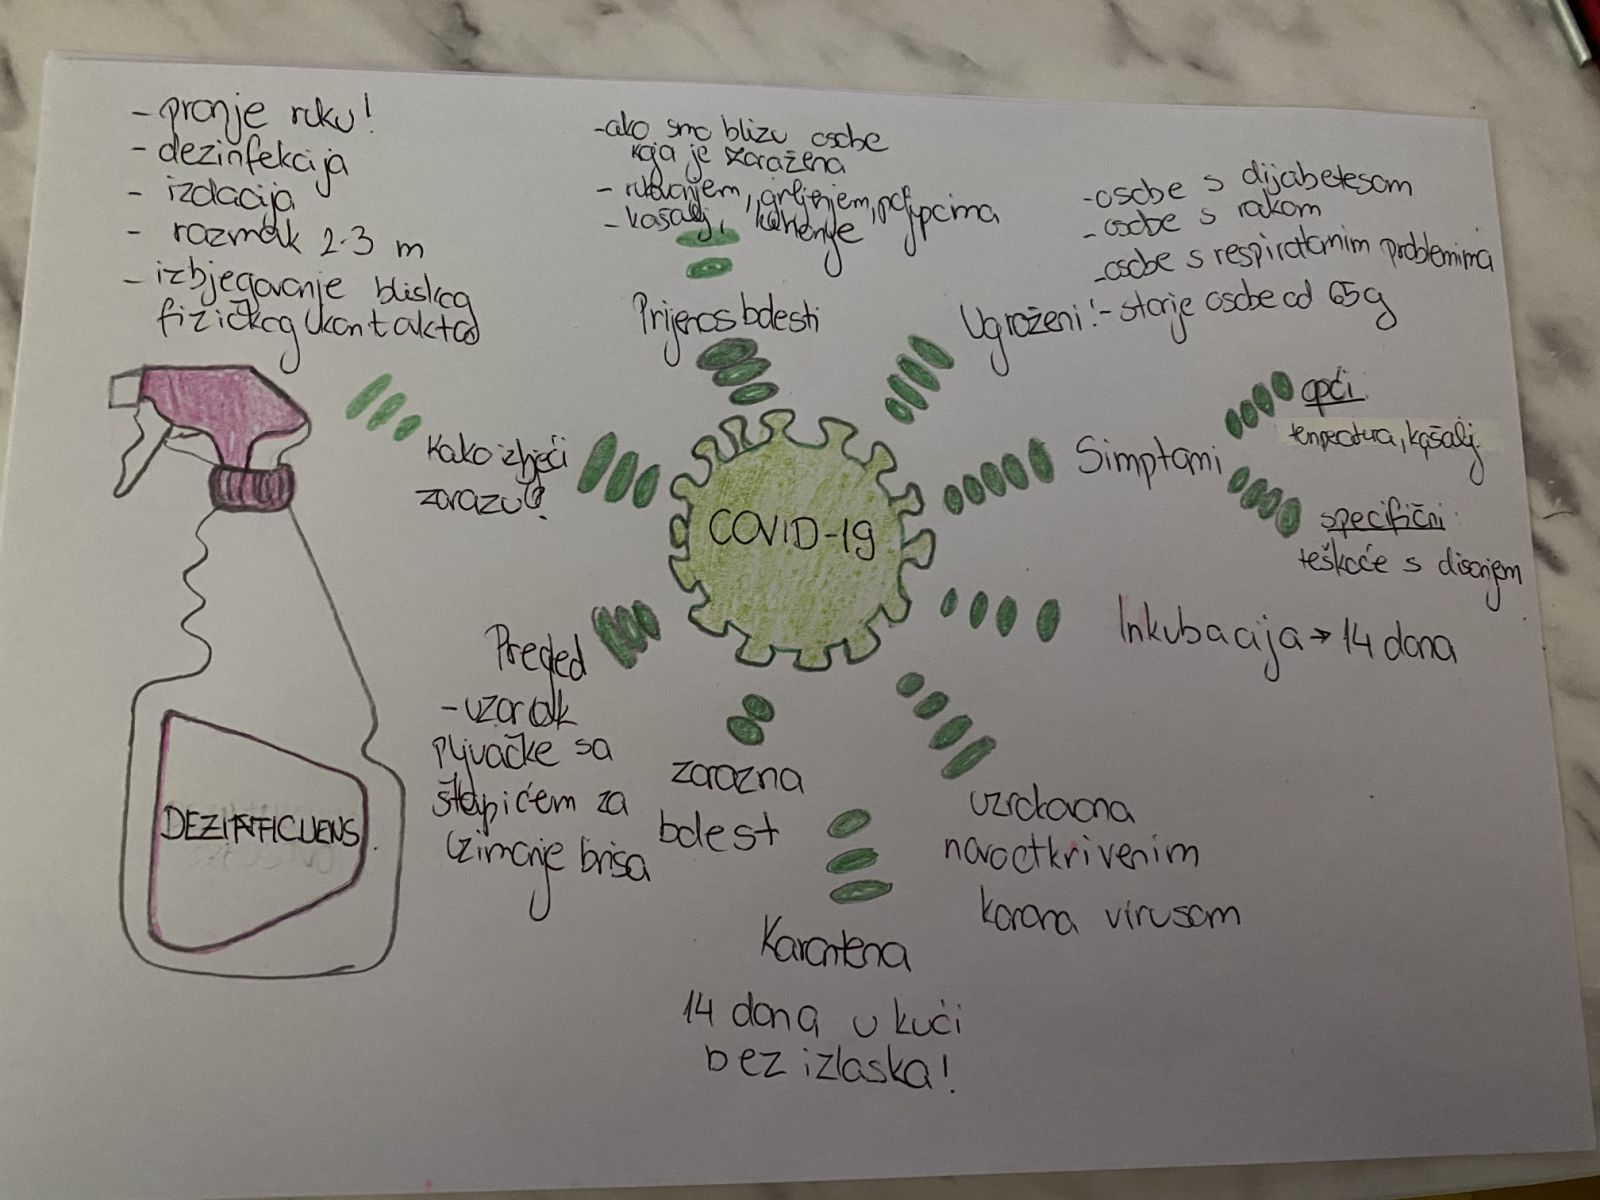 - pranje ruku!
- dezinfekcija
- izolacija
- razmak 2-3 m
- izbjegavanje bliskog
fizičkog kontakta
Kako izbjeći
zarazu?
- ako smo blizu osobe
koja je zaražena
- rukovanjem, grljenjem, poljupcima
- kašalj, kihanje
Prijenos bolesti
- osobe s dijabetesom
- osobe s rakom
- osobe s respiratornim problemima
Ugroženi! - starije osobe od 65g
Simptomi
opći
temperatura, kašalj
specifični
teškoće s disanjem
COVID-19
Inkubacija → 14 dana
Pregled
- uzorak
pljuvačke sa
štapićem za
uzimanje brisa
zarazna
bolest
uzrokovana
novootkrivenim
korona virusom
Karantena
14 dana u kući
bez izlaska!
DEZINFICIJENS